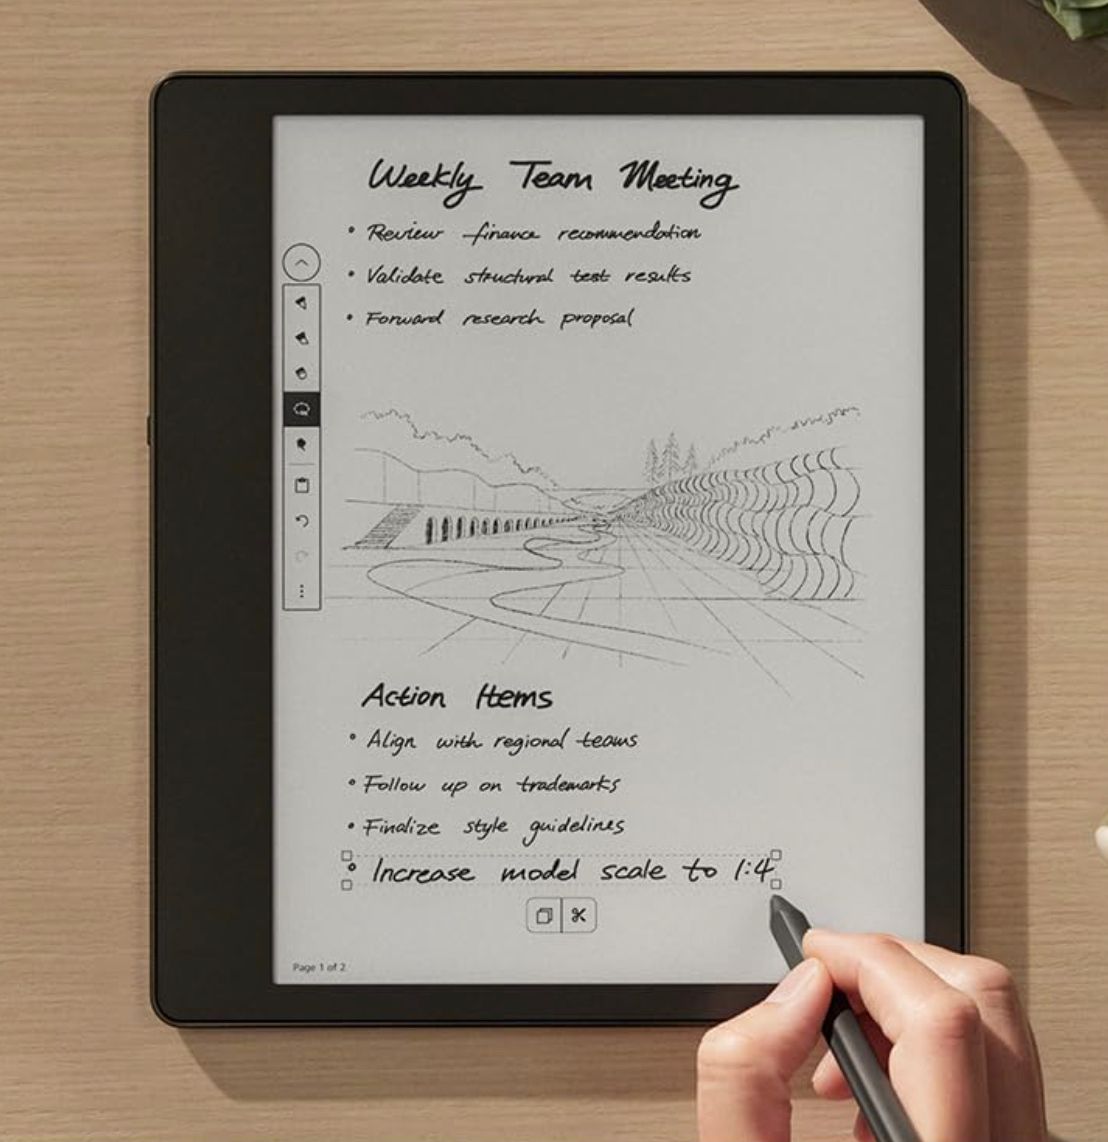 Weekly Team Meeting
• Review finance recommendation
• Validate structural test results
• Forward research proposal
Action Items
• Align with regional teams
• Follow up on trademarks
• Finalize style guidelines
• Increase model scale to 1:4
Page 1 of 2